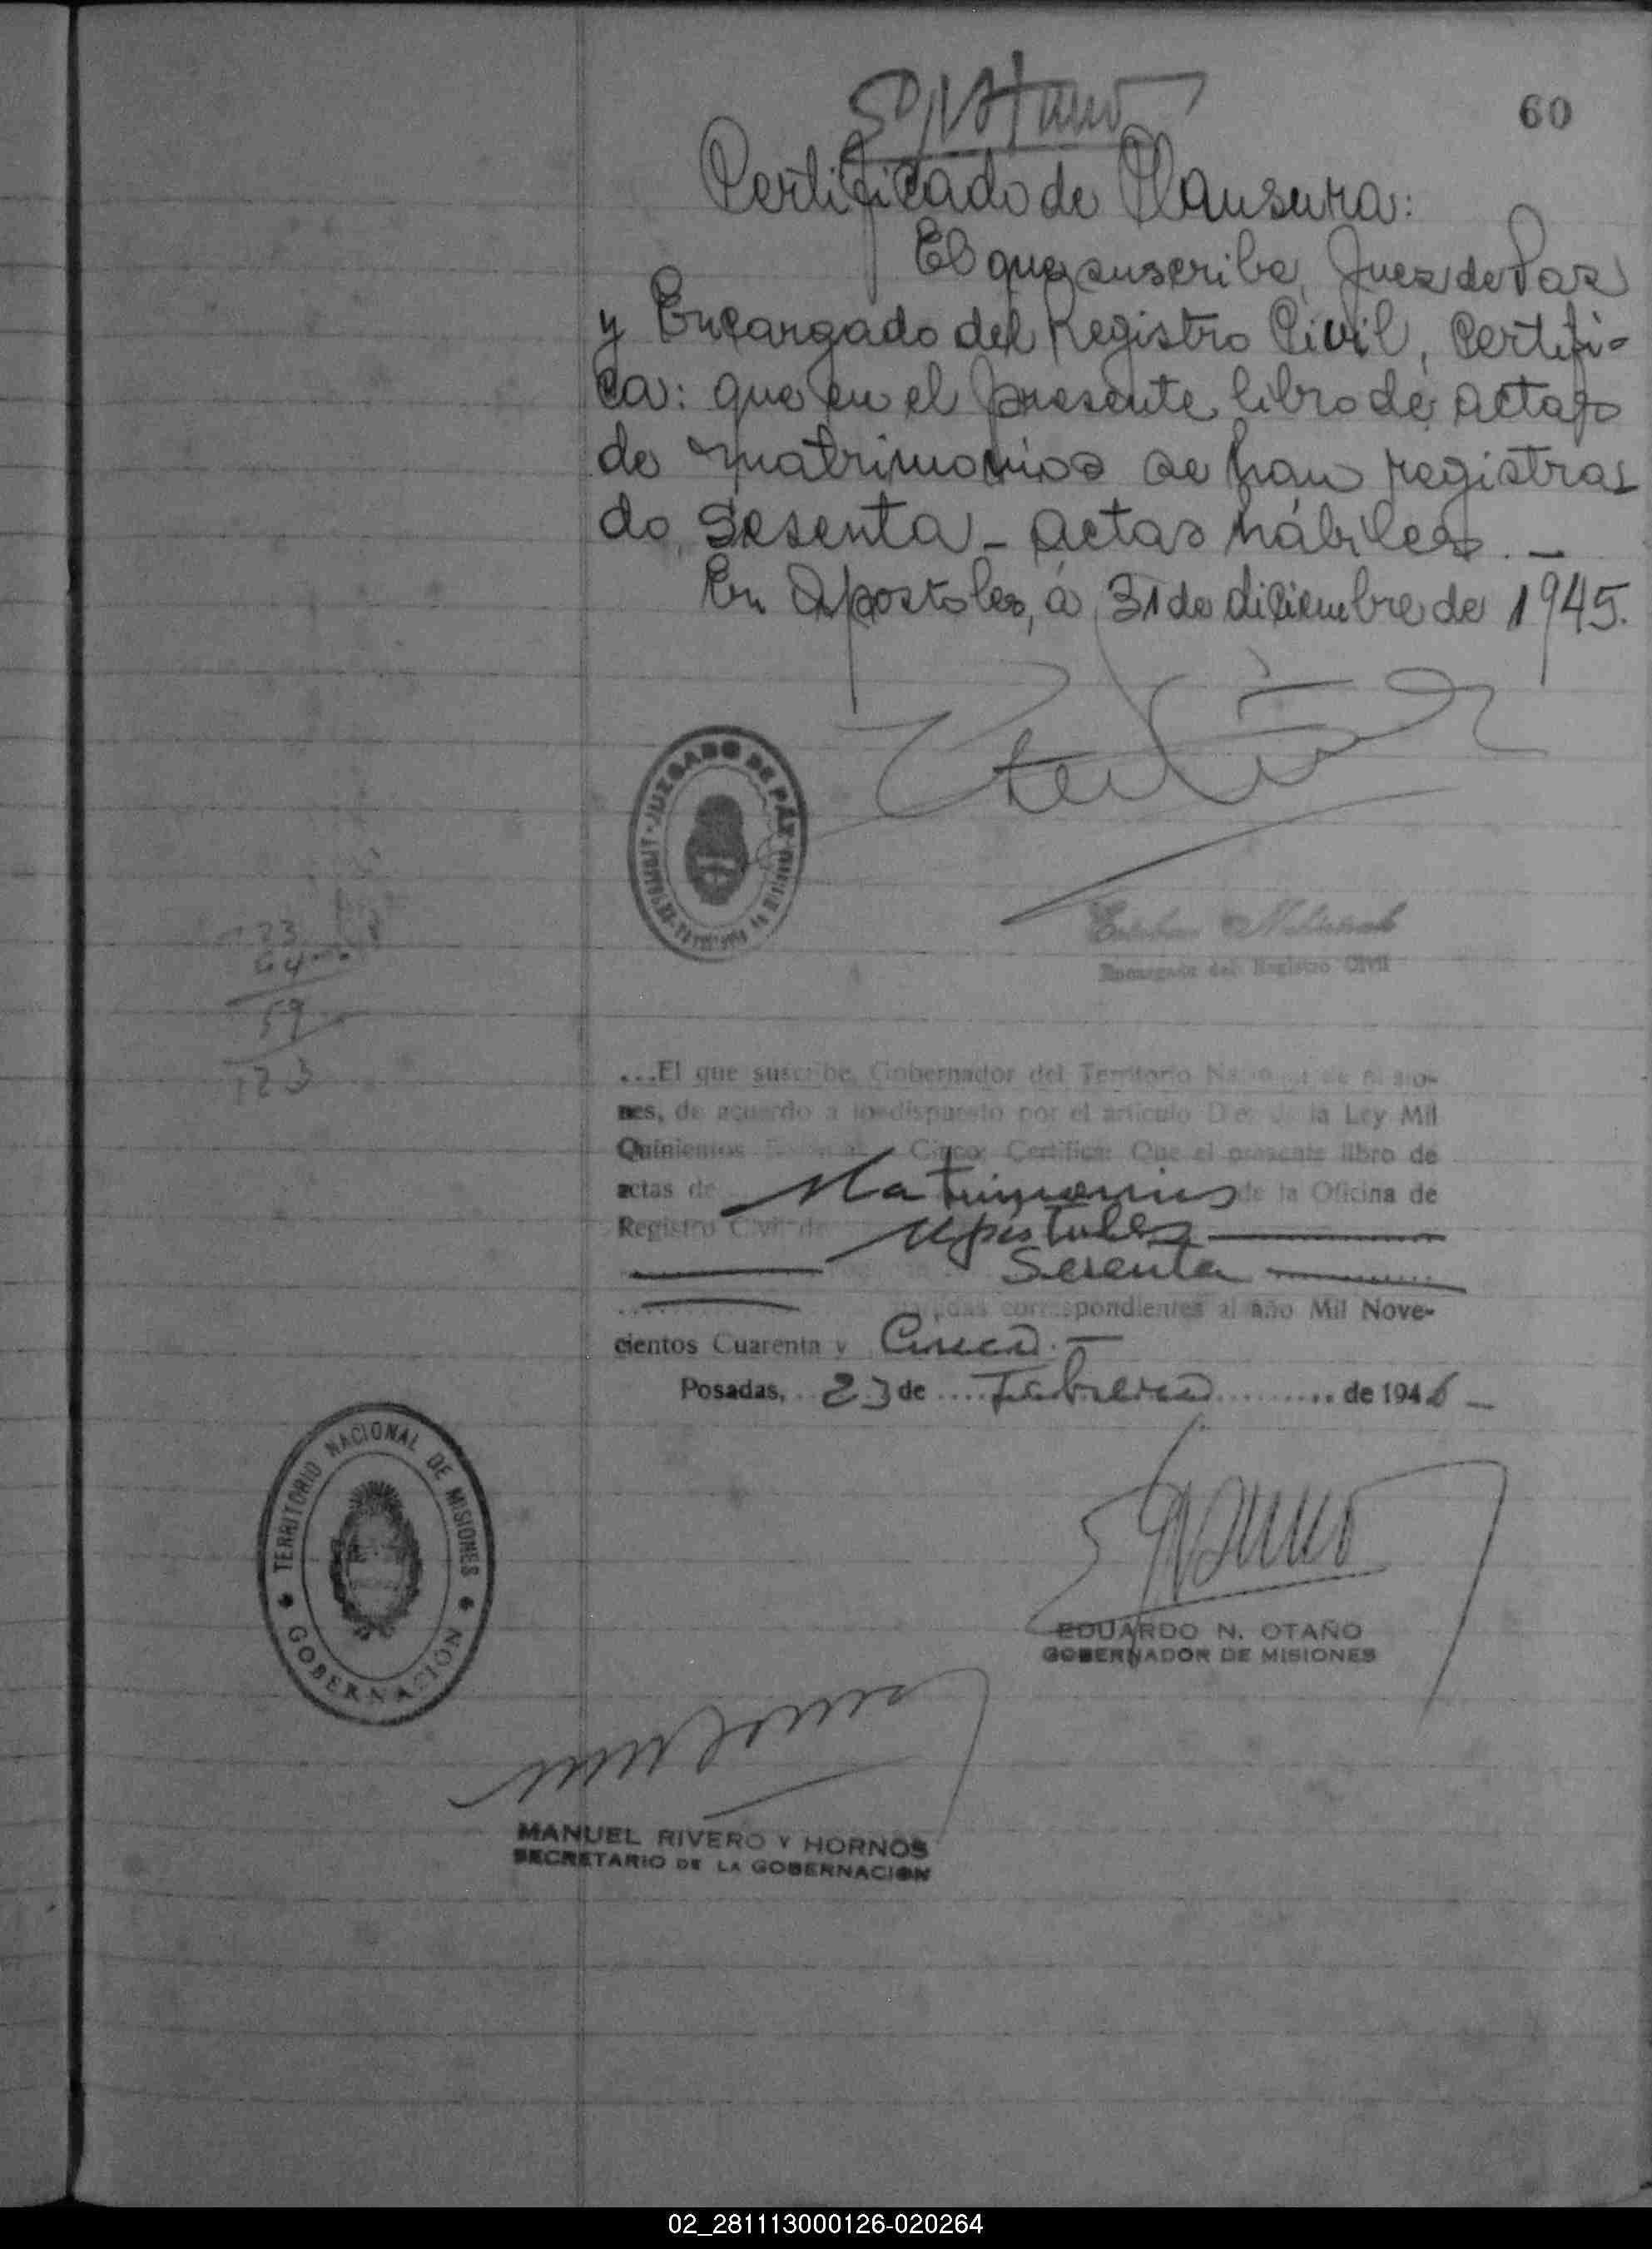 60
Certificado de Clausura:
El que suscribe, Juez de Paz
y Encargado del Registro Civil, Certifi-
ca: que en el presente libro de actas
de matrimonios se han registra-
do, Sesenta - actas hábiles. -
En Apostoles, a 31 de diciembre de 1945.
JUZGADO DE PAZ
Encargado del Registro Civil
23
64
59
123
...El que suscribe, Gobernador del Territorio Nacional de Misio-
nes, de acuerdo a lo dispuesto por el artículo Diez de la Ley Mil
Quinientos Cinco; Certifica: Que el presente libro de
actas de Matrimonios de la Oficina de
Registro Civil de Apostoles
Sesenta
correspondientes al año Mil Nove-
cientos Cuarenta y Cinco. -
Posadas, 23 de Febrero de 1946 -
TERRITORIO NACIONAL DE MISIONES
GOBERNACION
EDUARDO N. OTAÑO
GOBERNADOR DE MISIONES
MANUEL RIVERO Y HORNOS
SECRETARIO DE LA GOBERNACION
02_281113000126-020264